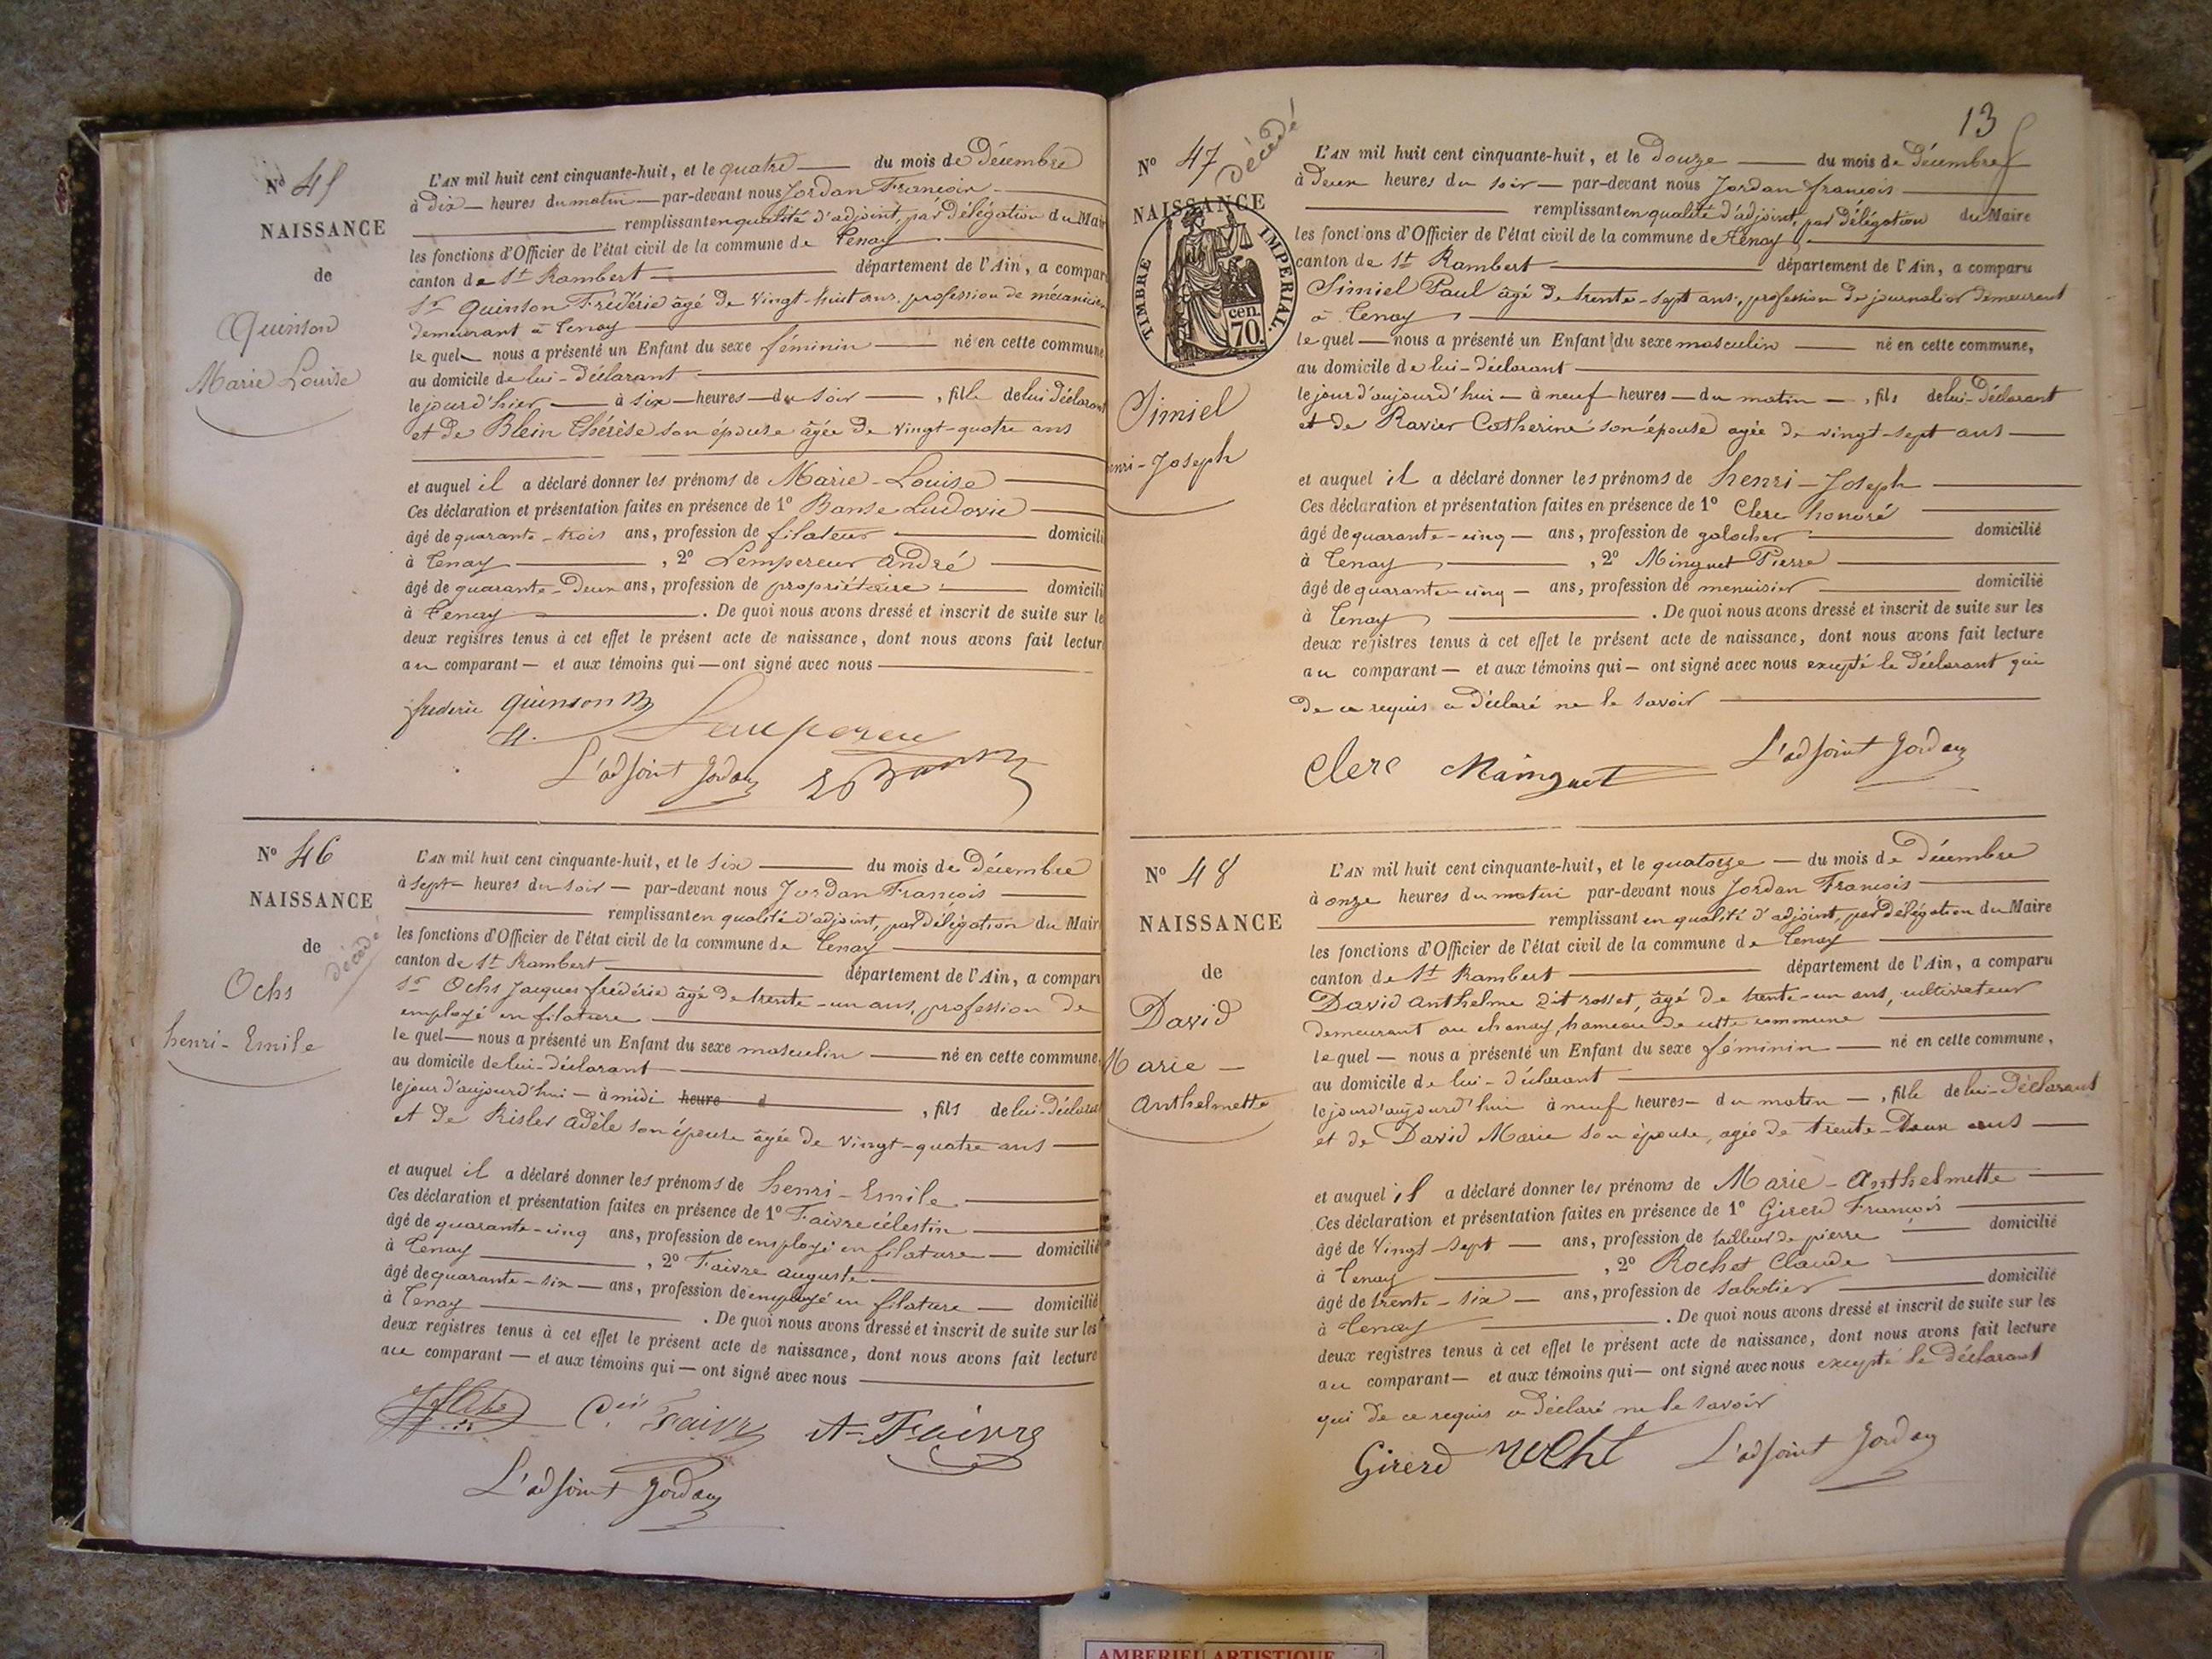 Nº 45
NAISSANCE
de
Quinson
Marie Louise
L'AN mil huit cent cinquante-huit, et le quatre du mois de Décembre
à dix heures du matin par-devant nous Jordan François
remplissant en qualité d'adjoint, par délégation du Mair
les fonctions d'Officier de l'état civil de la commune de Tenay
canton de St Rambert département de l'Ain, a compar
Sr Quinson Frédéric âgé de vingt-huit ans, profession de mécanicien
demeurant à Tenay
le quel nous a présenté un Enfant du sexe féminin né en cette commune
au domicile de lui-déclarant
le jour d'hier à six heures du soir, fille de lui déclarant
et de Blein Thérèse son épouse âgée de vingt-quatre ans
et auquel il a déclaré donner les prénoms de Marie-Louise
Ces déclaration et présentation faites en présence de 1º Banse Ludovic
âgé de quarante-trois ans, profession de filateur domicili
à Tenay, 2º Lempereur André
âgé de quarante-deux ans, profession de propriétaire domicili
à Tenay. De quoi nous avons dressé et inscrit de suite sur le
deux registres tenus à cet effet le présent acte de naissance, dont nous avons fait lectur
au comparant et aux témoins qui ont signé avec nous
frederic quinson
Lempereu
L'adjoint Jordan
Nº 46
NAISSANCE
de
décédé
Ochs
henri-Emile
L'AN mil huit cent cinquante-huit, et le six du mois de Décembre
à sept heures du soir par-devant nous Jordan François
remplissant en qualité d'adjoint, par délégation du Mair
les fonctions d'Officier de l'état civil de la commune de Tenay
canton de St Rambert département de l'Ain, a compar
Sr Ochs Jacques frédéric âgé de trente-un ans, profession de
employé en filature
le quel nous a présenté un Enfant du sexe masculin né en cette commune
au domicile de lui-déclarant
le jour d'aujourd'hui à midi heure d, fils de lui-déclarant
et de Risler Adèle son épouse âgée de vingt-quatre ans
et auquel il a déclaré donner les prénoms de henri-Emile
Ces déclaration et présentation faites en présence de 1º Faivre célestin
âgé de quarante-cinq ans, profession de employé en filature domicilié
à Tenay, 2º Faivre auguste
âgé de quarante-six ans, profession de employé en filature domicilié
à Tenay. De quoi nous avons dressé et inscrit de suite sur les
deux registres tenus à cet effet le présent acte de naissance, dont nous avons fait lecture
au comparant et aux témoins qui ont signé avec nous
Faivre A-Faivre
L'adjoint Jordan
13
Nº 47
décédé
NAISSANCE
TIMBRE IMPERIAL.
cen. 70.
Simiel
enri-Joseph
L'AN mil huit cent cinquante-huit, et le douze du mois de Décembre
à deux heures du soir par-devant nous Jordan françois
remplissant en qualité d'adjoint, par délégation du Maire
les fonctions d'Officier de l'état civil de la commune de Tenay
canton de St Rambert département de l'Ain, a comparu
Simiel Paul âgé de trente-sept ans, profession de journalier demeurant
à Tenay
le quel nous a présenté un Enfant du sexe masculin né en cette commune,
au domicile de lui-déclarant
le jour d'aujourd'hui à neuf heures du matin, fils de lui-déclarant
et de Ravier Catherine son épouse agée de vingt-sept ans
et auquel il a déclaré donner les prénoms de henri-Joseph
Ces déclaration et présentation faites en présence de 1º Clerc honoré
âgé de quarante-cinq ans, profession de galocher domicilié
à Tenay, 2º Minguet Pierre
âgé de quarante-cinq ans, profession de menuisier domicilié
à Tenay. De quoi nous avons dressé et inscrit de suite sur les
deux registres tenus à cet effet le présent acte de naissance, dont nous avons fait lecture
au comparant et aux témoins qui ont signé avec nous excepté le déclarant qui
de ce requis a déclaré ne le savoir
Clerc Mainguet L'adjoint Jordan
Nº 48
NAISSANCE
de
David
Marie-
Anthelmette
L'AN mil huit cent cinquante-huit, et le quatorze du mois de Décembre
à onze heures du matin par-devant nous Jordan François
remplissant en qualité d'adjoint, par délégation du Maire
les fonctions d'Officier de l'état civil de la commune de Tenay
canton de St Rambert département de l'Ain, a comparu
David Anthelme dit rosset, âgé de trente-un ans, cultivateur
demeurant au chanay, hameau de cette commune
le quel nous a présenté un Enfant du sexe féminin né en cette commune,
au domicile de lui-déclarant
le jour d'aujourd'hui à neuf heures du matin, fille de lui-déclarant
et de David Marie son épouse, agée de trente-deux ans
et auquel il a déclaré donner les prénoms de Marie-Anthelmette
Ces déclaration et présentation faites en présence de 1º Girerd François
âgé de vingt-sept ans, profession de tailleur de pierre domicilié
à Tenay, 2º Rochet Claude
âgé de trente-six ans, profession de sabotier domicilié
à Tenay. De quoi nous avons dressé et inscrit de suite sur les
deux registres tenus à cet effet le présent acte de naissance, dont nous avons fait lecture
au comparant et aux témoins qui ont signé avec nous excepté le déclarant
qui de ce requis a déclaré ne le savoir
Girerd L'adjoint Jordan
AMBERIEU ARTISTIQUE